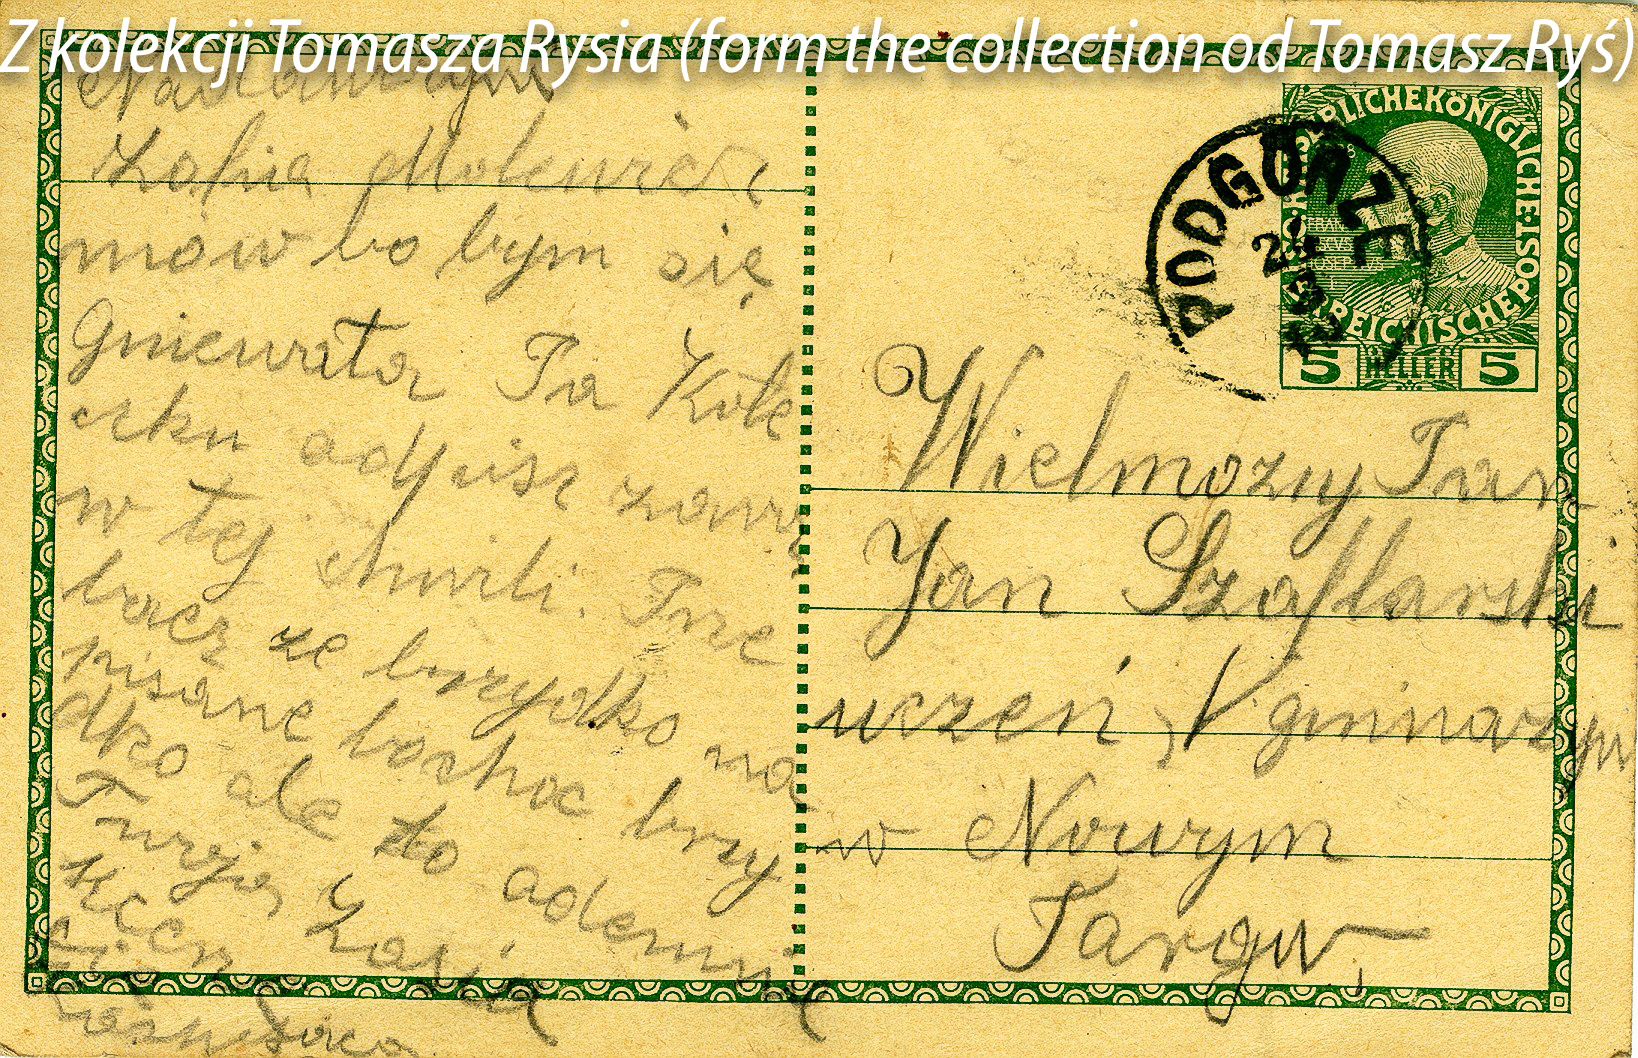 Z kolekcji Tomasza Rysia (form the collection od Tomasz Ryś)
Zofia
mów bo bym się
gniewała Pa Kole
żku odpisz zaraz
w tej chwili. Prze
bacz że brzydko na
pisane bochoc brzy
dko ale to odemnie
Twoja Zosia
KAISERLICHE KÖNIGLICHE ÖSTERREICHISCHE POST
5 HELLER 5
PODGÓRZE
Wielmożny Pan
Jan Szaflarski
uczeń, V gimnazym
w Nowym
Targu,